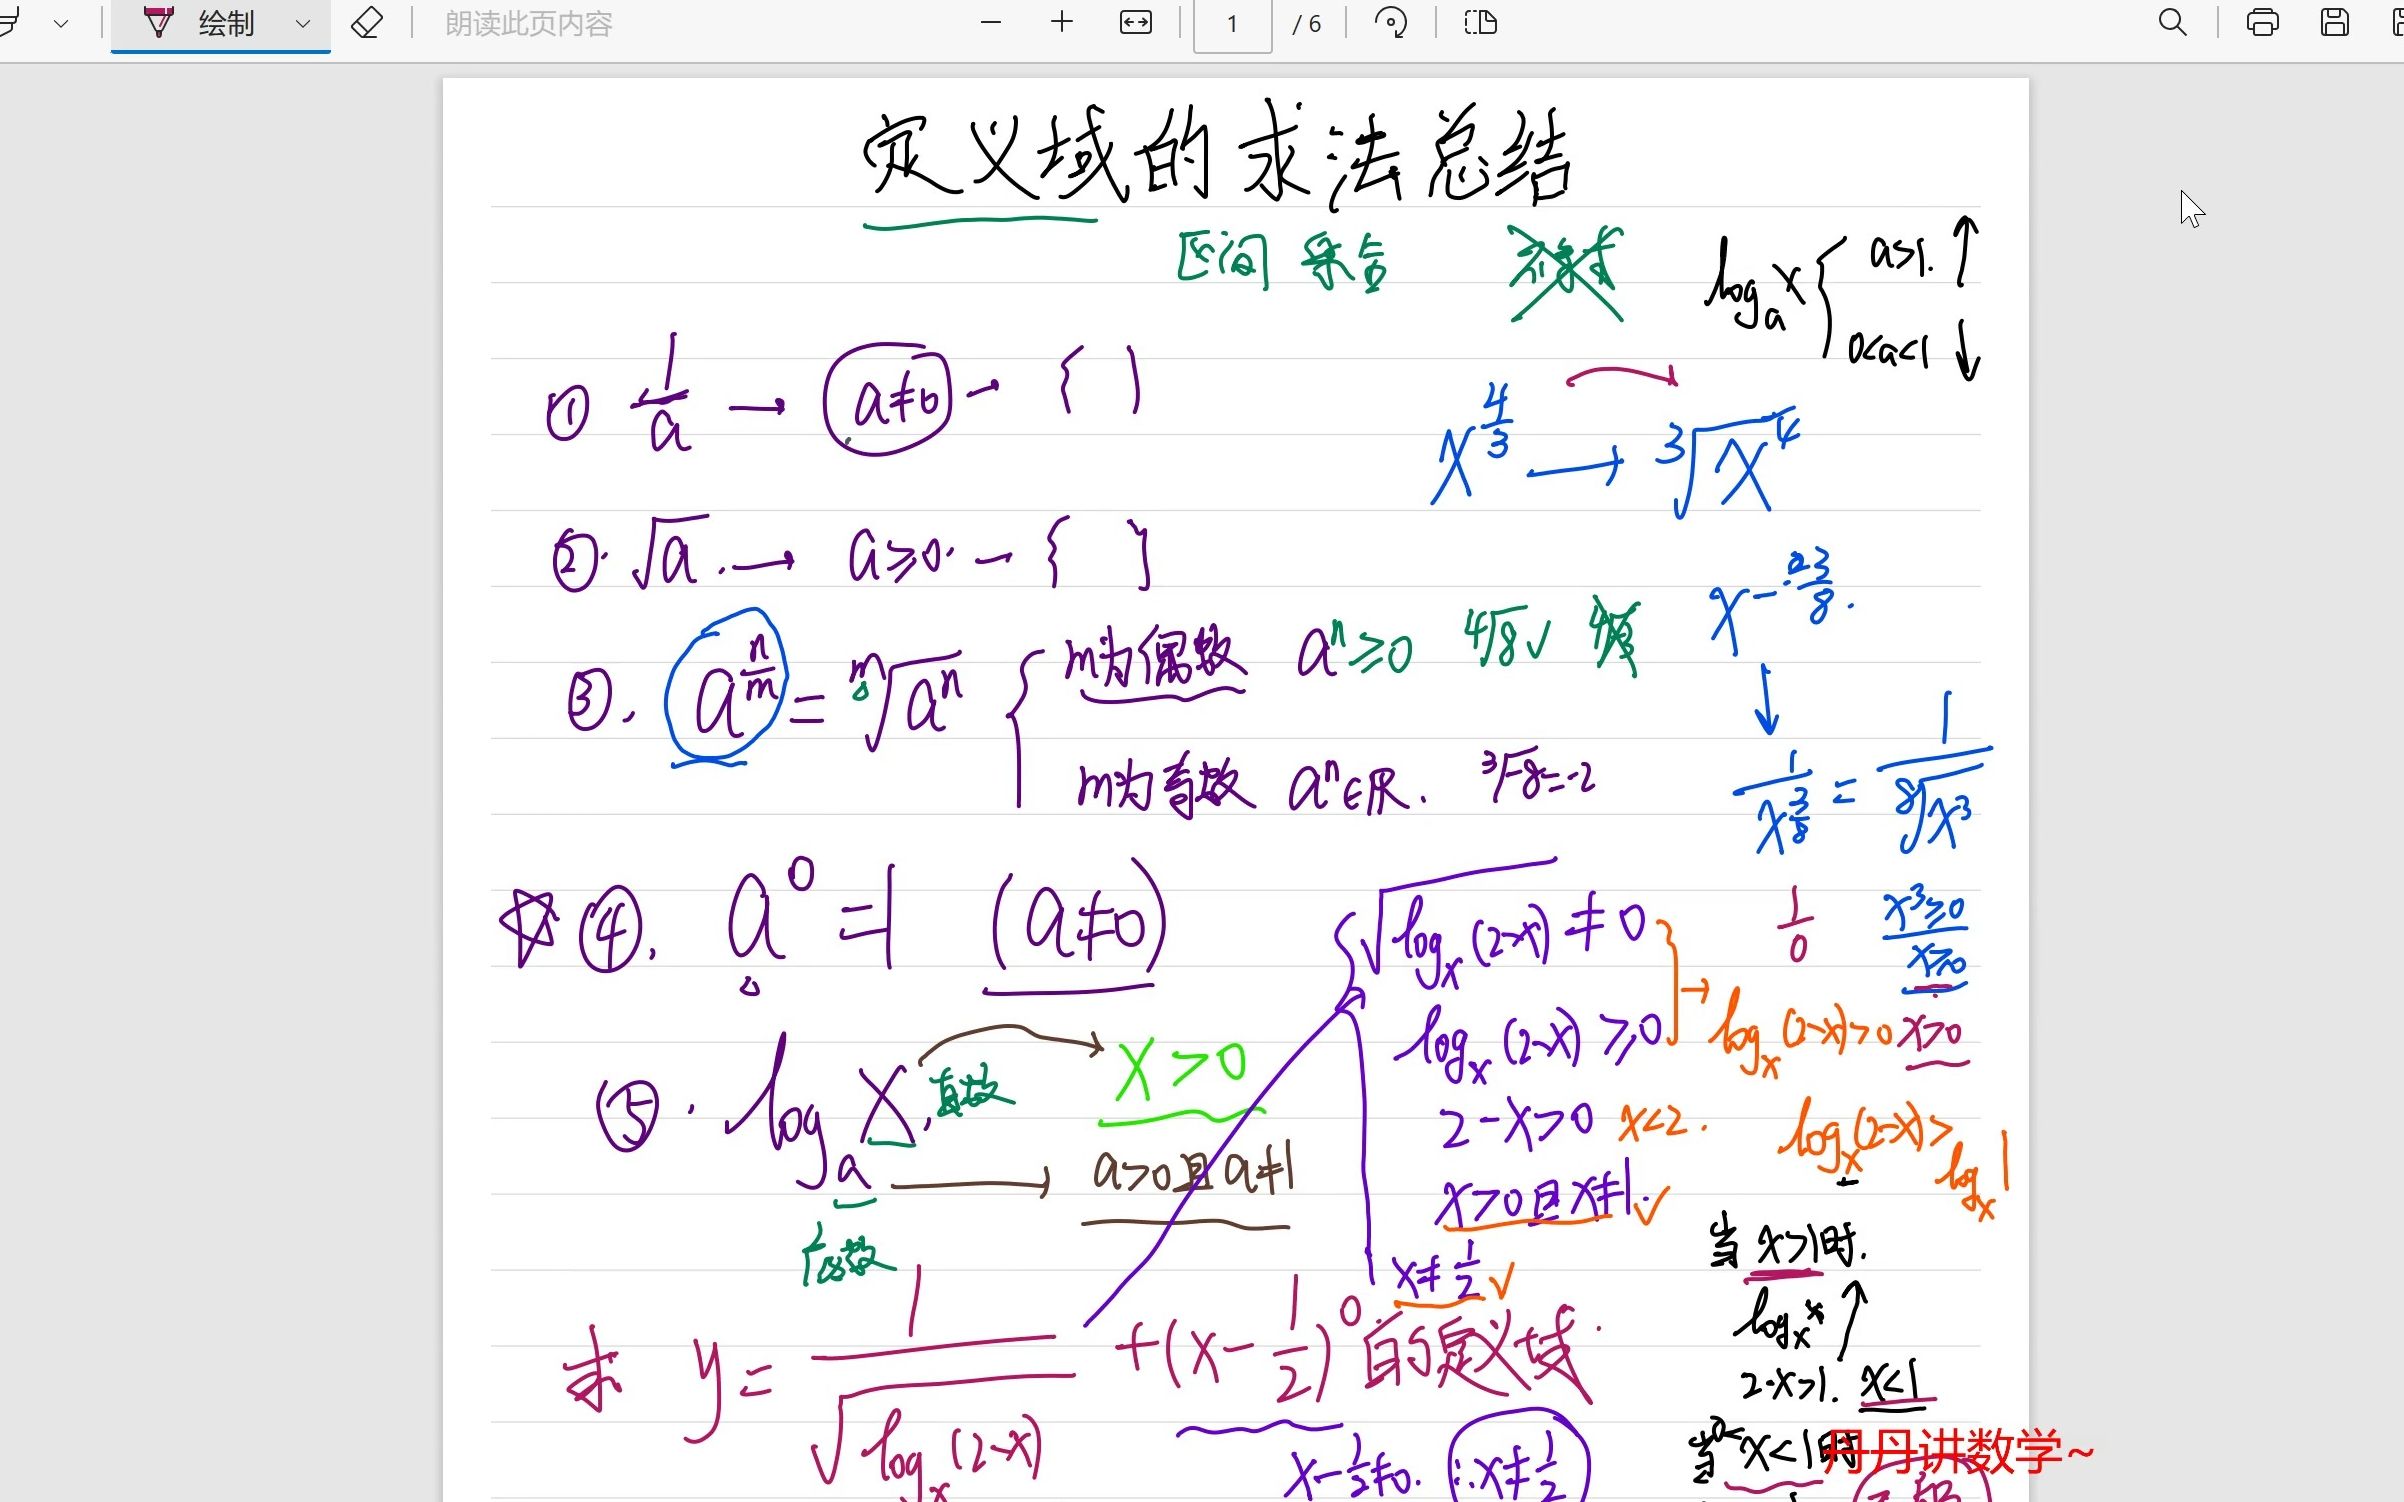 绘制 朗读此页内容 1 / 6
定义域的求法总结
区间 集合 不等式
logₐx { a>1. ↑
0<a<1 ↓
① 1/a → a≠0 → { }
x^(4/3) → ³√x⁴
② √a. → a≥0. → { }
③. a^(n/m) = ᵐ√aⁿ { m为偶数 aⁿ≥0 ⁴√8 ✓
m为奇数 aⁿ∈R. ³√-8=-2
1/x^(3/8) = 1/⁸√x³
☆④. a⁰=1 (a≠0)
1/0 x³≥0
x≥0
x>0
⑤. logₐx, 真数 → x>0
底数 → a>0且a≠1
√logₓ(2-x) ≠0
logₓ(2-x)≥0 → logₓ(2-x)>0
2-x>0 x<2.
logₓ(2-x)>logₓ1
x>0且x≠1. ✓
x≠1/2 ✓
当x>1时.
logₓx ↑
2-x>1. x<1
求 y= 1/√logₓ(2-x) +(x-1/2)⁰的定义域.
x-1/2≠0. ∴x≠1/2
当0<x<1时
丹丹讲数学~